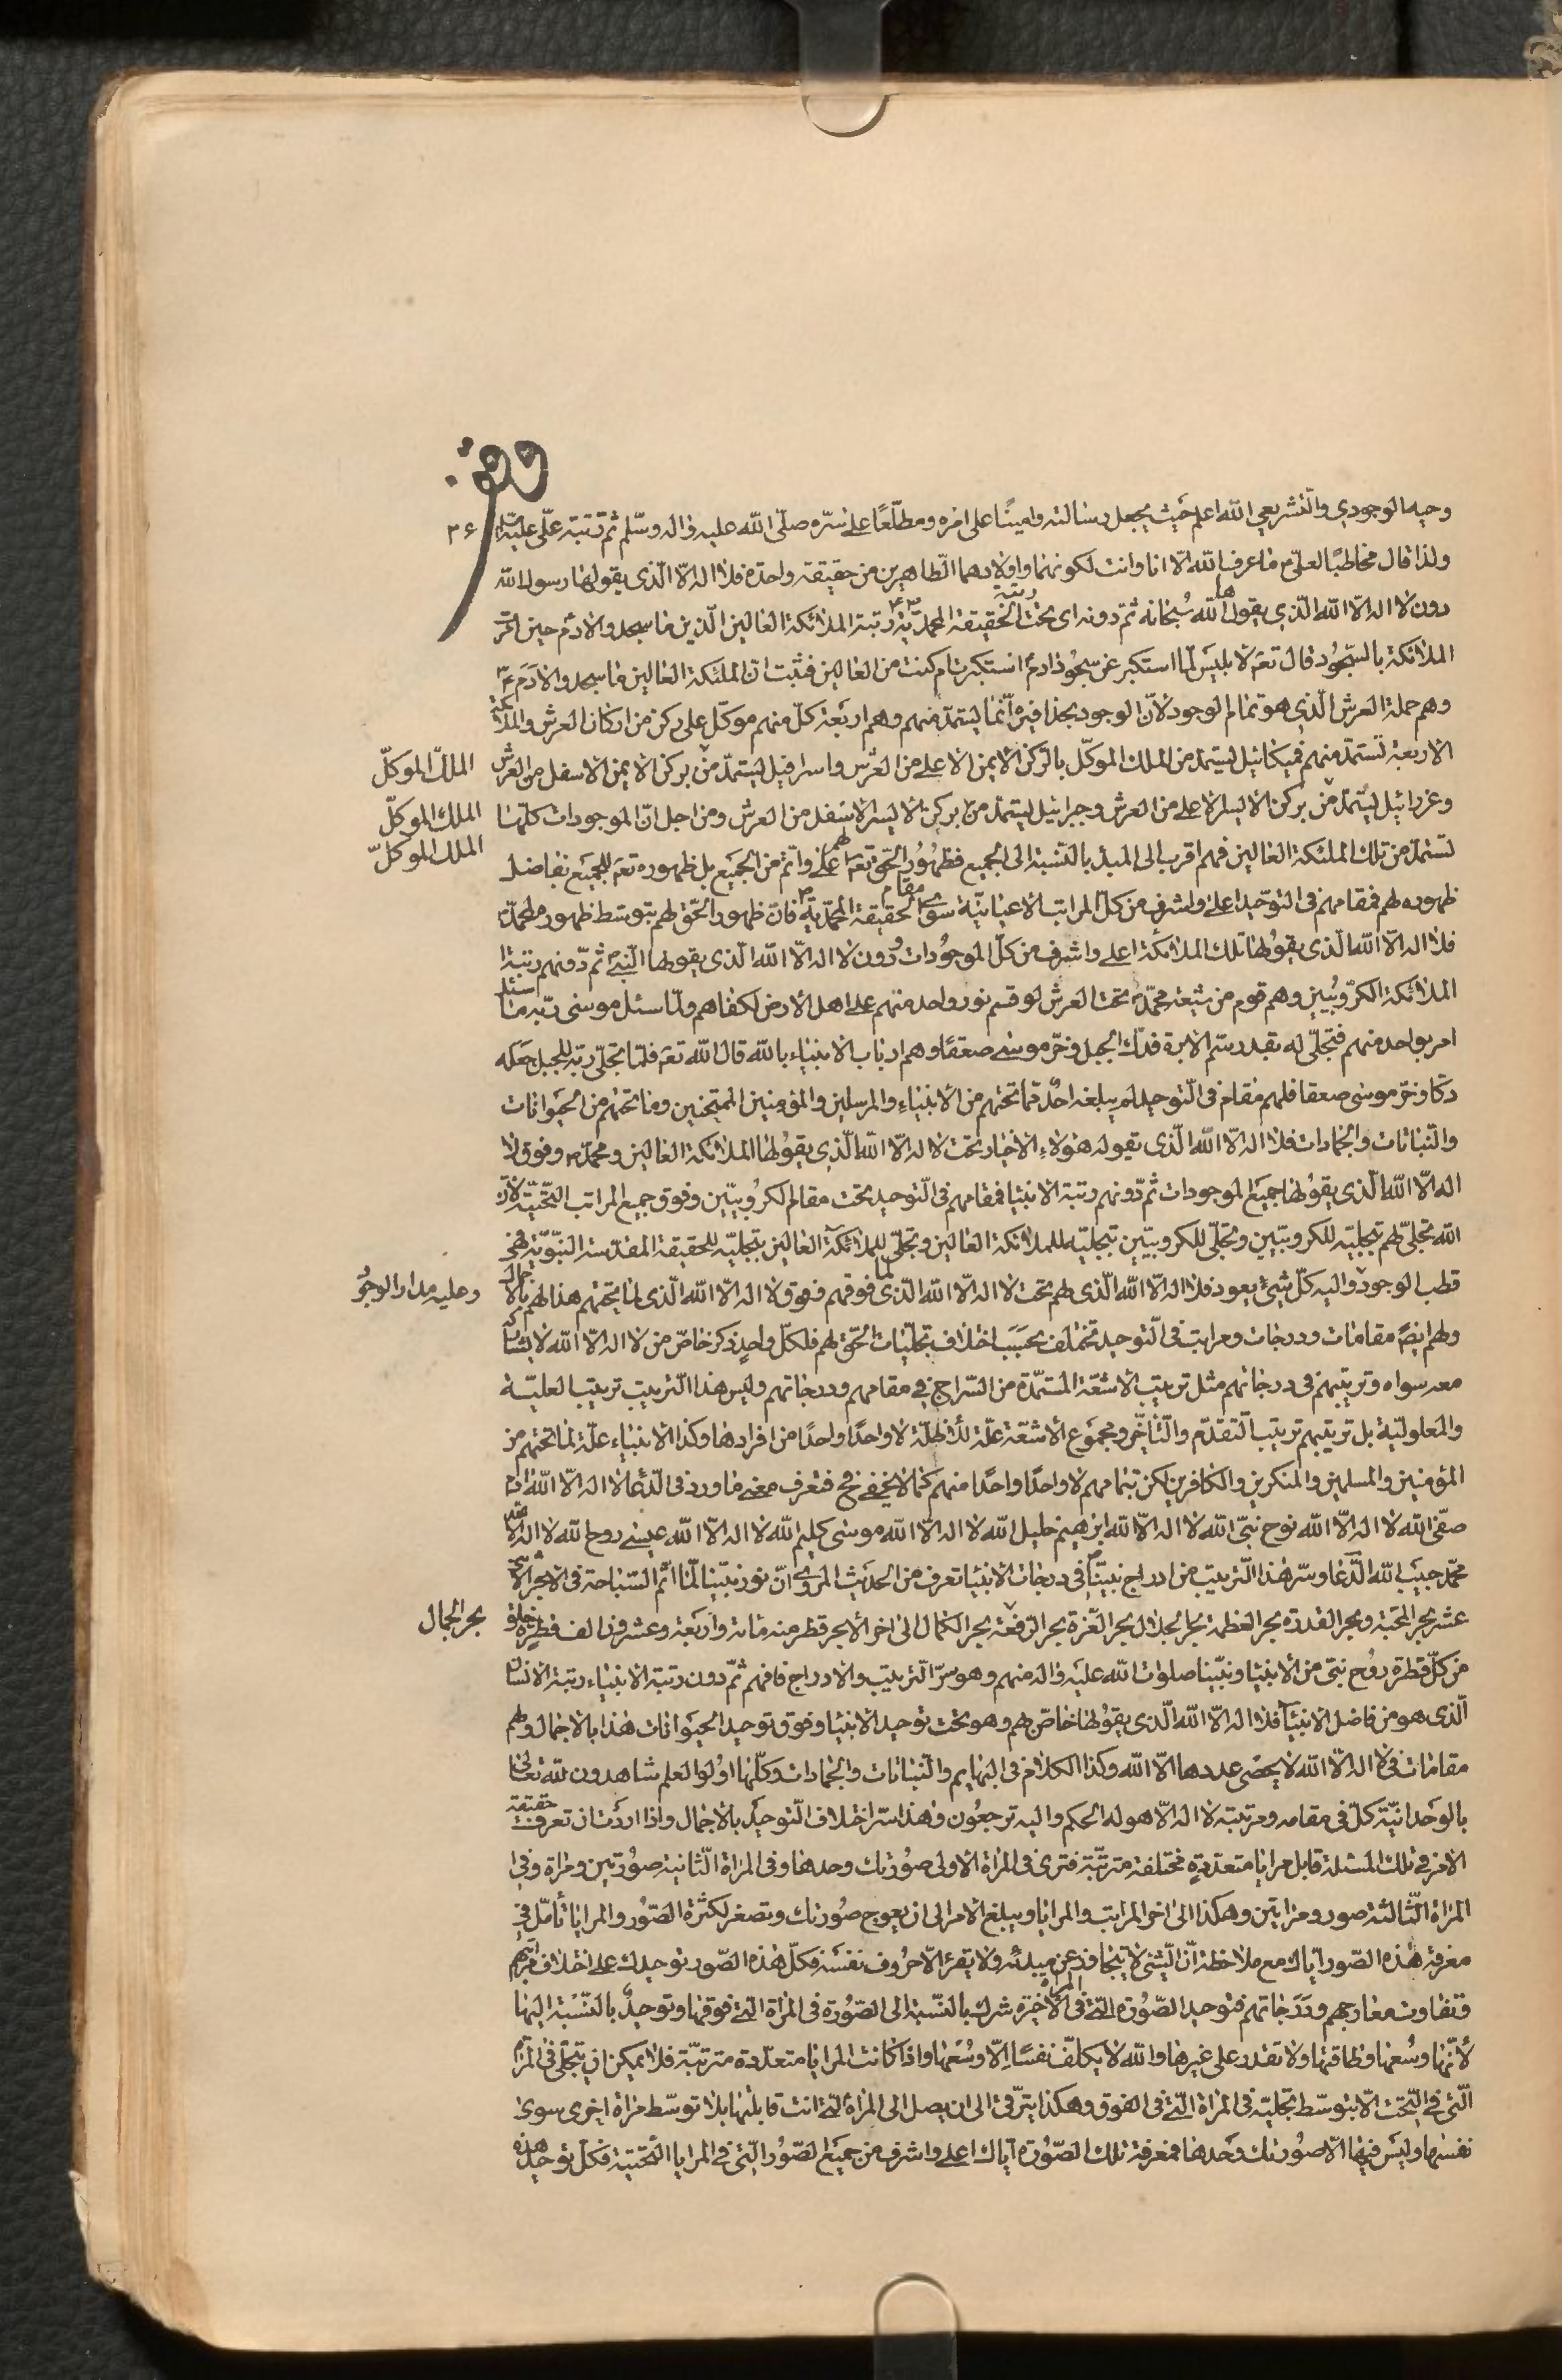 وقف
٣٤
وحيه الوجودي والتشريعي الله اعلم حيث يجعل رسالته وامينًا على امره ومطلّعًا على سرّه صلّى الله عليه واله وسلّم ثم رتبة علي عليه
ولذا قال مخاطبًا لعليّ ما عرف الله الّا انا وانت لكونهما واولادهما الطّاهرين من حقيقة واحدة فلا اله الّا الّذي يقولها رسول الله
دون لا اله الّا الله الّذي يقولها الله سُبحانه ثمّ دونه اى تحت رتبة الحقيقة المحمّديّة رتبة الملائكة العالين الّذين ما سجدوا لادم حين امر
الملائكة بالسّجود قال تعه لابليس لمّا استكبر عن سجود ادم استكبرت ام كنت من العالين فثبت انّ الملئكة العالين ما سجدوا لادم
وهم حملة العرش الّذي هو تمام الوجود لانّ الوجود بحذافيره انّما يستمدّ منهم وهم اربعة كلّ منهم موكّل على ركن من اركان العرش والملائكة
الاربعة تستمدّ منهم فميكائيل يستمدّ من الملك الموكّل بالرّكن الايمن الاعلى من العرش واسرافيل يستمدّ من بركن الايمن الاسفل من العرش
الملك الموكّل
وعزرائيل يستمدّ من بركن الايسر الاعلى من العرش وجبرائيل يستمدّ من بركن الايسر الاسفل من العرش ومن اجل انّ الموجودات كلّها
الملك الموكّل
تستمدّ من تلك الملئكة العالين فهم اقرب الى المبدء بالنّسبة الى الجميع فظهور الحقّ تعه لهم اعلى واتمّ من الجميع بل ظهوره تعه للجميع بفاضل
الملك الموكّل
ظهوره لهم فمقامهم فى التّوحيد اعلى واشرف من كلّ المراتب الاعيانيّة سوى مقام الحقيقة المحمّديّة فانّ ظهور الحقّ لهم بتوسّط ظهوره لمحمّد
فلا اله الّا الله الّذي يقولها تلك الملائكة اعلى واشرف من كلّ الموجودات دون لا اله الّا الله الّذى يقولها النّبيّ ثمّ دونهم رتبة
الملائكة الكرّوبيين وهم قوم من شيعة محمّد تحت العرش لو قسم نور واحد منهم على اهل الارض لكفاهم ولمّا سئل موسى ربّه ما سئل
امر بواحد منهم فتجلّى له بقدر سمّ الابرة فدكّ الجبل وخرّ موسى صعقًا وهم ارباب الانبياء بالله قال الله تعه فلمّا تجلّى ربّه للجبل جعله
دكّا وخرّ موسى صعقا فلهم مقام فى التّوحيد لم يبلغه احد ممّا تحتهم من الانبياء والمرسلين والمؤمنين الممتحنين وما تحتهم من الحيوانات
والنّباتات والجمادات فلا اله الّا الله الّذى تقوله هؤلاء الاخيار تحت لا اله الّا الله الّذي يقولها الملائكة العالين ومحمّد وفوق لا
اله الّا الله الّذى يقولها جميع الموجودات ثمّ دونهم رتبة الانبياء فمقامهم فى التّوحيد تحت مقام الكرّوبيّين وفوق جميع المراتب التّحتيّة لانّ
الله تجلّى لهم بتجليّه للكروبيّين وتجلّى للكروبيّين بتجليّه للملائكة العالين وتجلّى للملائكة العالين بتجليّه للحقيقة المقدّسة النّبويّة فهى
قطب الوجود واليه كلّ شيئ يعود فلا اله الّا الله الّذى لهم تحت لا اله الّا الله الّذى لما فوقهم وفوق لا اله الّا الله الّذى لما تحتهم هذا لهم بالاجمال
وعليه مدار الوجود
ولهم ايضا مقامات ودرجات ومراتب فى التّوحيد تختلف بحسب اختلاف تجلّيات الحقّ لهم فلكلّ واحد ذكر خاصّ من لا اله الّا الله لا يشاركه
معه سواه وترتيبهم فى درجاتهم مثل ترتيب الاشعّة المستمدّة من السّراج فى مقامهم ودرجاتهم وليس هذا التّرتيب ترتيب العليّة
والمعلوليّة بل ترتيبهم ترتيب التّقدّم والتّأخّر ومجموع الاشعّة علّة للأظلّة لا واحدًا واحدًا من افرادها وكذا الانبياء علّة لما تحتهم من
المؤمنين والمسلمين والمنكرين والكافرين لكن بتمامهم لا واحدًا واحدًا منهم كما لا يخفى فح فتعرف معنى ما ورد فى الدّعاء لا اله الّا الله ادم
صفى الله لا اله الّا الله نوح نبىّ الله لا اله الّا الله ابرهيم خليل الله لا اله الّا الله موسى كليم الله لا اله الّا الله عيسى روح الله لا اله الّا الله
محمّد حبيب الله الدّعاء وسرّ هذا التّرتيب من ادراج نبيّنا فى درجات الانبياء تعرف من الحديث المروى انّ نور نبيّنا لمّا اتمّ السّباحة فى الابحر الاثنى
عشر بحر المحبّة وبحر القدرة بحر العظمة بحر الجلال بحر العزّة بحر الرّفعة بحر الكمال الى اخر الابحر قطر منه مائة واربعة وعشرون الف قطرة خلق
بحر الجمال
من كلّ قطرة روح نبيّ من الانبياء ونبيّنا صلوات الله عليه واله منهم وهو سرّ التّرتيب والادراج فافهم ثمّ دون رتبة الانبياء رتبة الانسان
الّذى هو من فاضل الانبياء فلا اله الّا الله الّذى يقولها خاصّ بهم وهو تحت توحيد الانبياء وفوق توحيد الحيوانات هذا بالاجمال ولهم
مقامات فى لا اله الّا الله لا يحصى عددها الّا الله وكذا الكلام فى البهايم والنّباتات والجمادات وكلّها اولوا العلم شاهدون لله تعالى
بالوحدانيّة كلّ فى مقامه ومرتبته لا اله الّا هو له الحكم واليه ترجعون وهذا سرّ اختلاف التّوحيد بالاجمال واذا اردت ان تعرف حقيقة
الامر فى تلك المسئلة قابل مرايا متعدّدة مختلفة مترتّبة فترى فى المراة الاولى صورتك وحدها وفى المراة الثّانية صورتين ومراة وفى
المراة الثّالثة صور ومراتين وهكذا الى اخر المراتب والمرايا ويبلغ الامر الى ان يعوج صورتك وتصغر لكثرة الصّور والمرايا تأمّل فى
معرفة هذه الصّور ايّاك مع ملاحظة انّ الشّىء لا يتجاوز عن مبدئه ولا يقرء الّا حروف نفسه فكلّ هذه الصّور توحيدك على اختلاف مراتبهم
وتفاوت معارجهم ودرجاتهم فتوحيد الصّورة الّتى فى المراة الاخيرة شرك بالنّسبة الى الصّورة فى المراة الّتى فوقها وتوحيد بالنّسبة اليها
لأنّها وسعها وطاقتها ولا تقدر على غيرها والله لا يكلّف نفسًا الّا وسعها واذا كانت المرايا متعدّدة مترتّبة فلا يمكن ان يتجلّى فى المراة
الّتى فى التّحت الّا بتوسّط تجليّه فى المراة الّتى فى الفوق وهكذا يترقّى الى ان يصل الى المراة الّتى انت قابلتها بلا توسّط مراة اخرى سوى
نفسها وليس فيها الّا صورتك وحدها فمعرفة تلك الصّورة ايّاك اعلى واشرف من جميع الصّور الّتى فى المرايا التّحتيّة فكلّ توحيد هذه